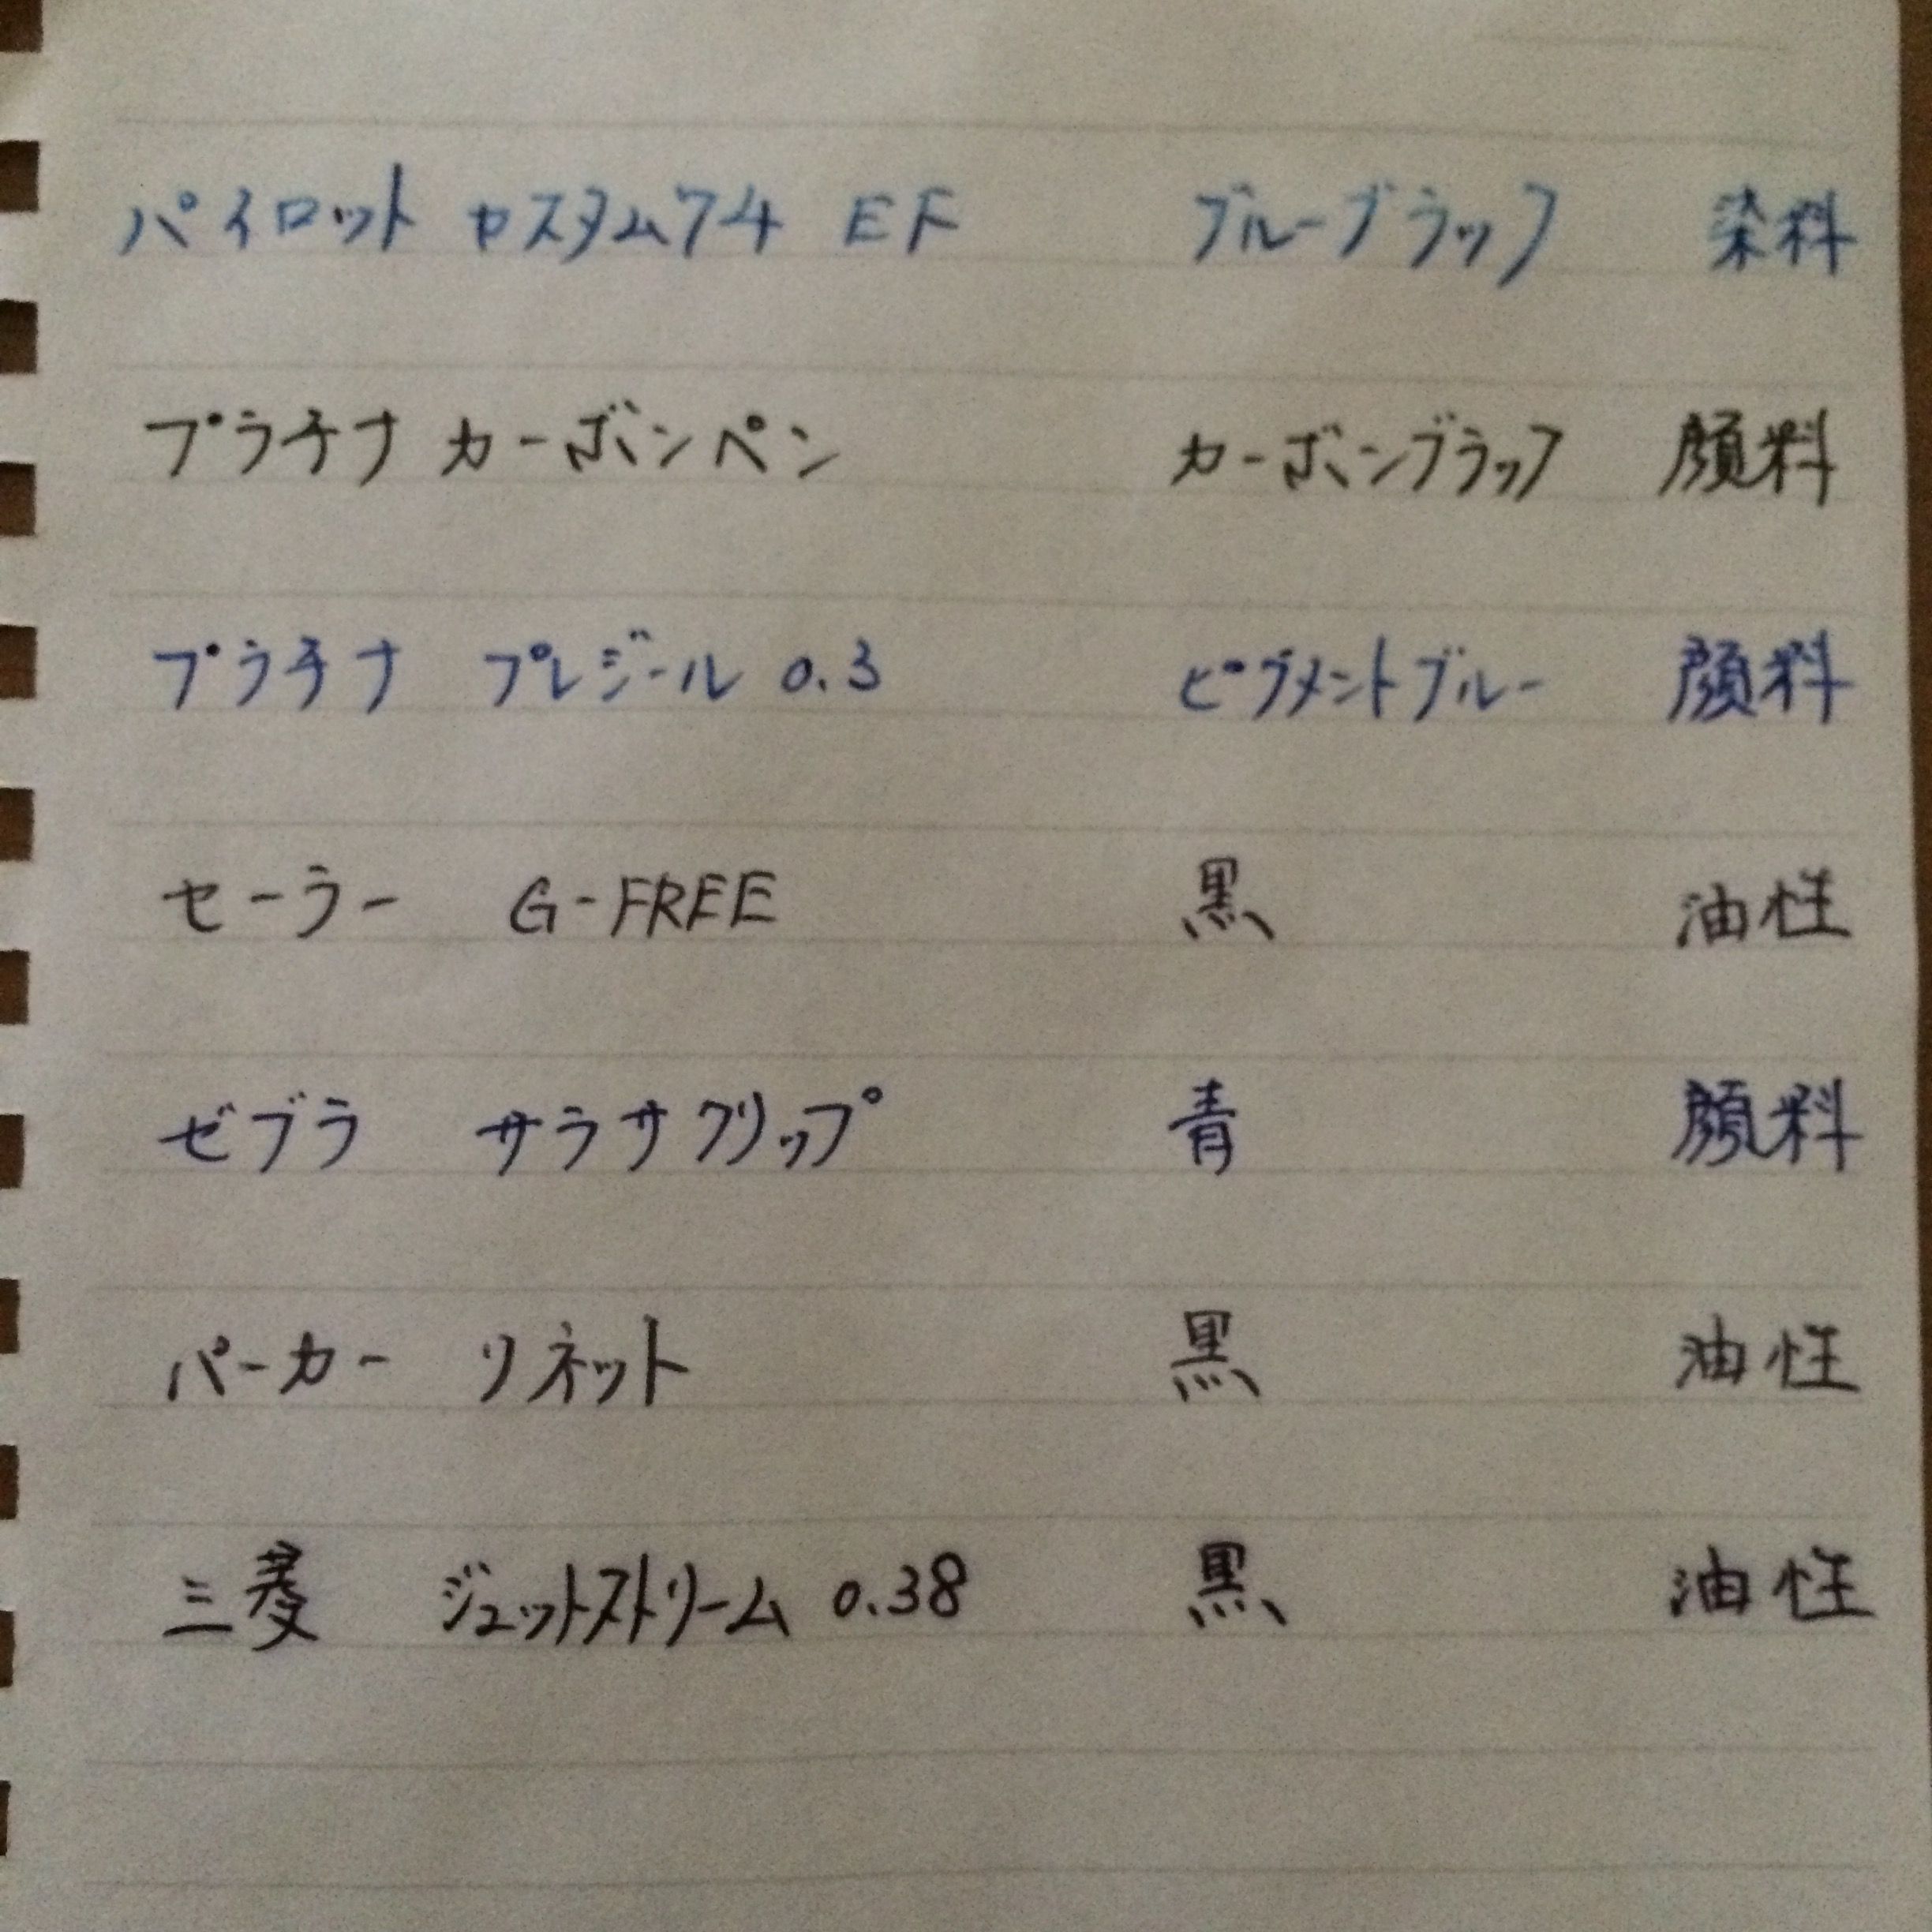 パイロット カスタム74 EF ブルーブラック 染料
プラチナ カーボンペン カーボンブラック 顔料
プラチナ プレジール 0.3 ピグメントブルー 顔料
セーラー G-FREE 黒 油性
ゼブラ サラサクリップ 青 顔料
パーカー ソネット 黒 油性
三菱 ジェットストリーム 0.38 黒 油性